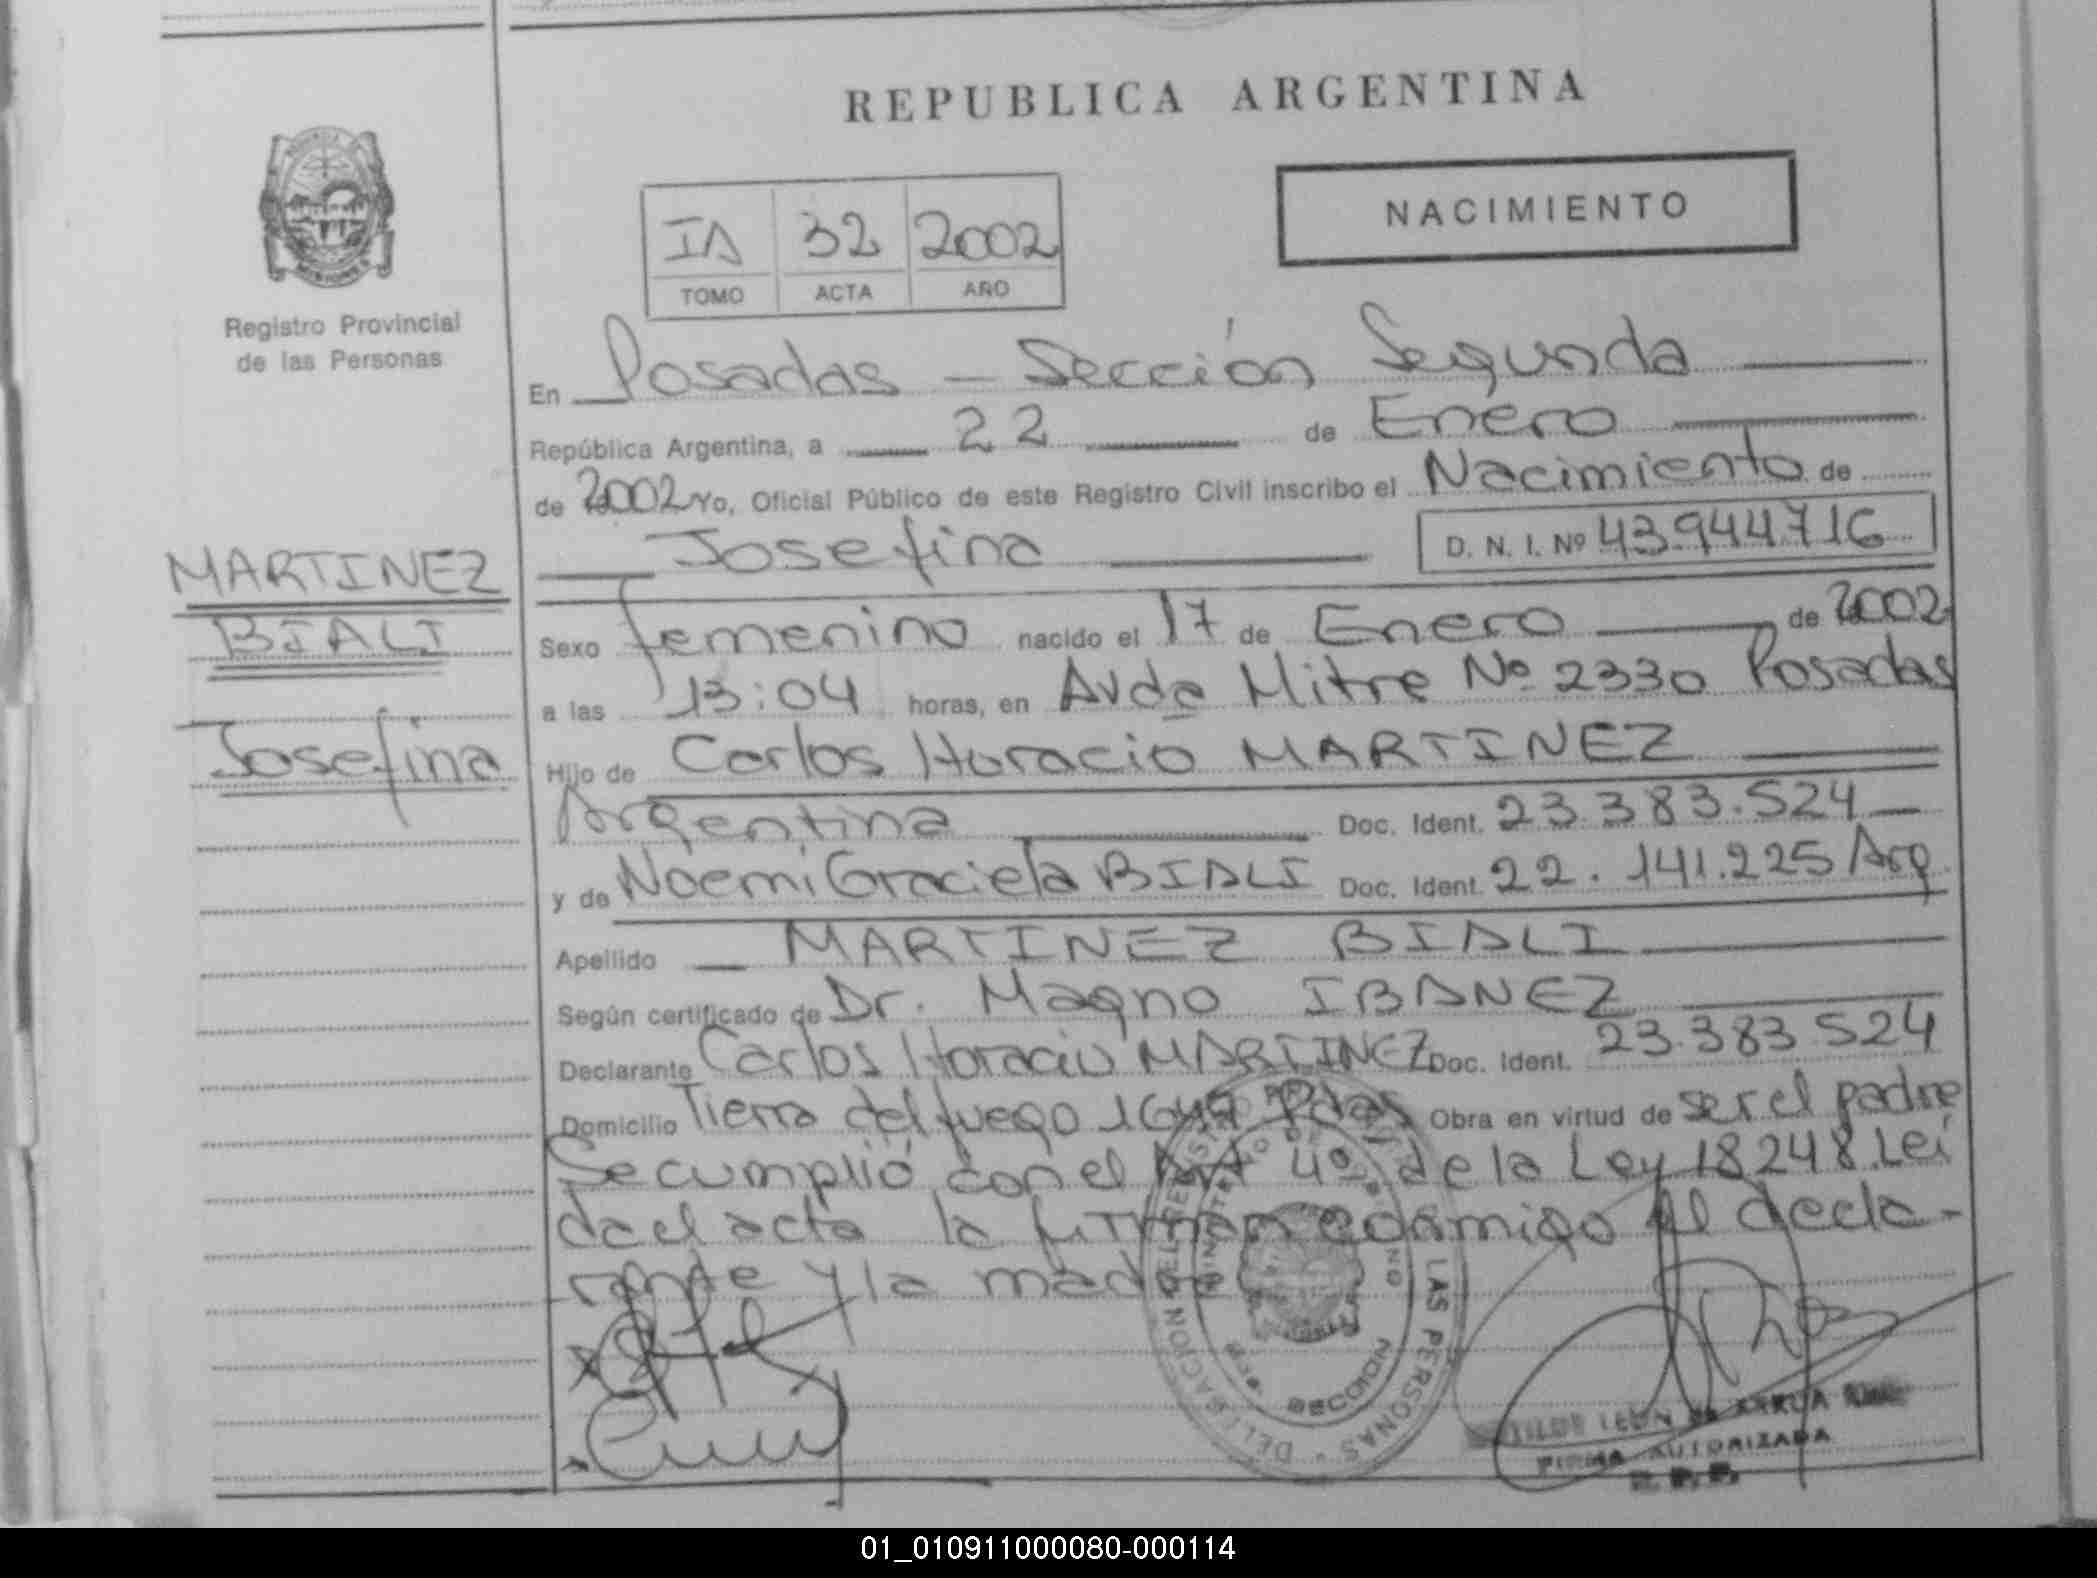 REPUBLICA ARGENTINA
NACIMIENTO
IA 32 2002
TOMO ACTA AÑO
Registro Provincial
de las Personas
En Posadas - Sección Segunda
República Argentina, a 22 de Enero
de 2002 Yo, Oficial Público de este Registro Civil inscribo el Nacimiento de
Josefina D. N. I. Nº 43944716
MARTINEZ
BIALI
Josefina
Sexo femenino nacido el 17 de Enero de 2002
a las 13:04 horas, en Avda Mitre Nº 2330 Posadas
Hijo de Carlos Horacio MARTINEZ
Argentina Doc. Ident. 23.383.524
y de Noemi Graciela BIALI Doc. Ident. 22.141.225 Arg.
Apellido MARTINEZ BIALI
Según certificado de Dr. Magno IBANEZ
Declarante Carlos Horacio MARTINEZ Doc. Ident. 23.383.524
Domicilio Tierra del fuego Pdas Obra en virtud de ser el padre
Se cumplió con el Art 4º de la Ley 18248. Leí
da el acta la firman conmigo el decla-
rante y la madre
DELEGACION DEL REGISTRO LAS PERSONAS
SECCION
LEON DE ARRUA
FIRMA AUTORIZADA
R.P.P.
01_010911000080-000114